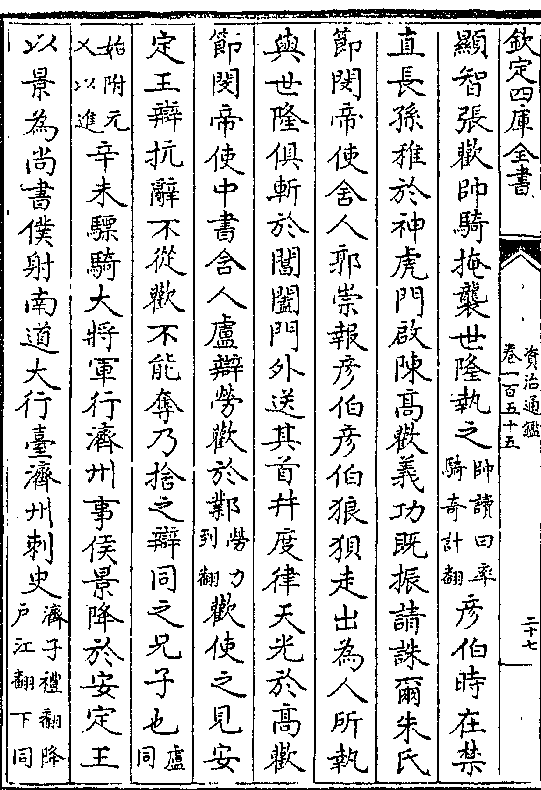 欽定四庫全書
資治通鑑
卷一百五十五
二十七
顯智張歡帥騎掩襲世隆執之帥讀曰率騎奇計翻彦伯時在禁
直長孫稚於神虎門啟陳髙歡義功既振請誅爾朱氏
節閔帝使舍人郭崇報彦伯彦伯狼狽走出為人所執
與世隆俱斬於閶闔門外送其首并度律天光於髙歡
節閔帝使中書舍人盧辯勞歡於鄴勞力到翻歡使之見安
定王辯抗辭不從歡不能奪乃捨之辯同之兄子也盧同
始附元乂以進辛未驃騎大將軍行濟州事侯景降於安定王
以景為尚書僕射南道大行臺濟州刺史濟子禮翻降户江翻下同